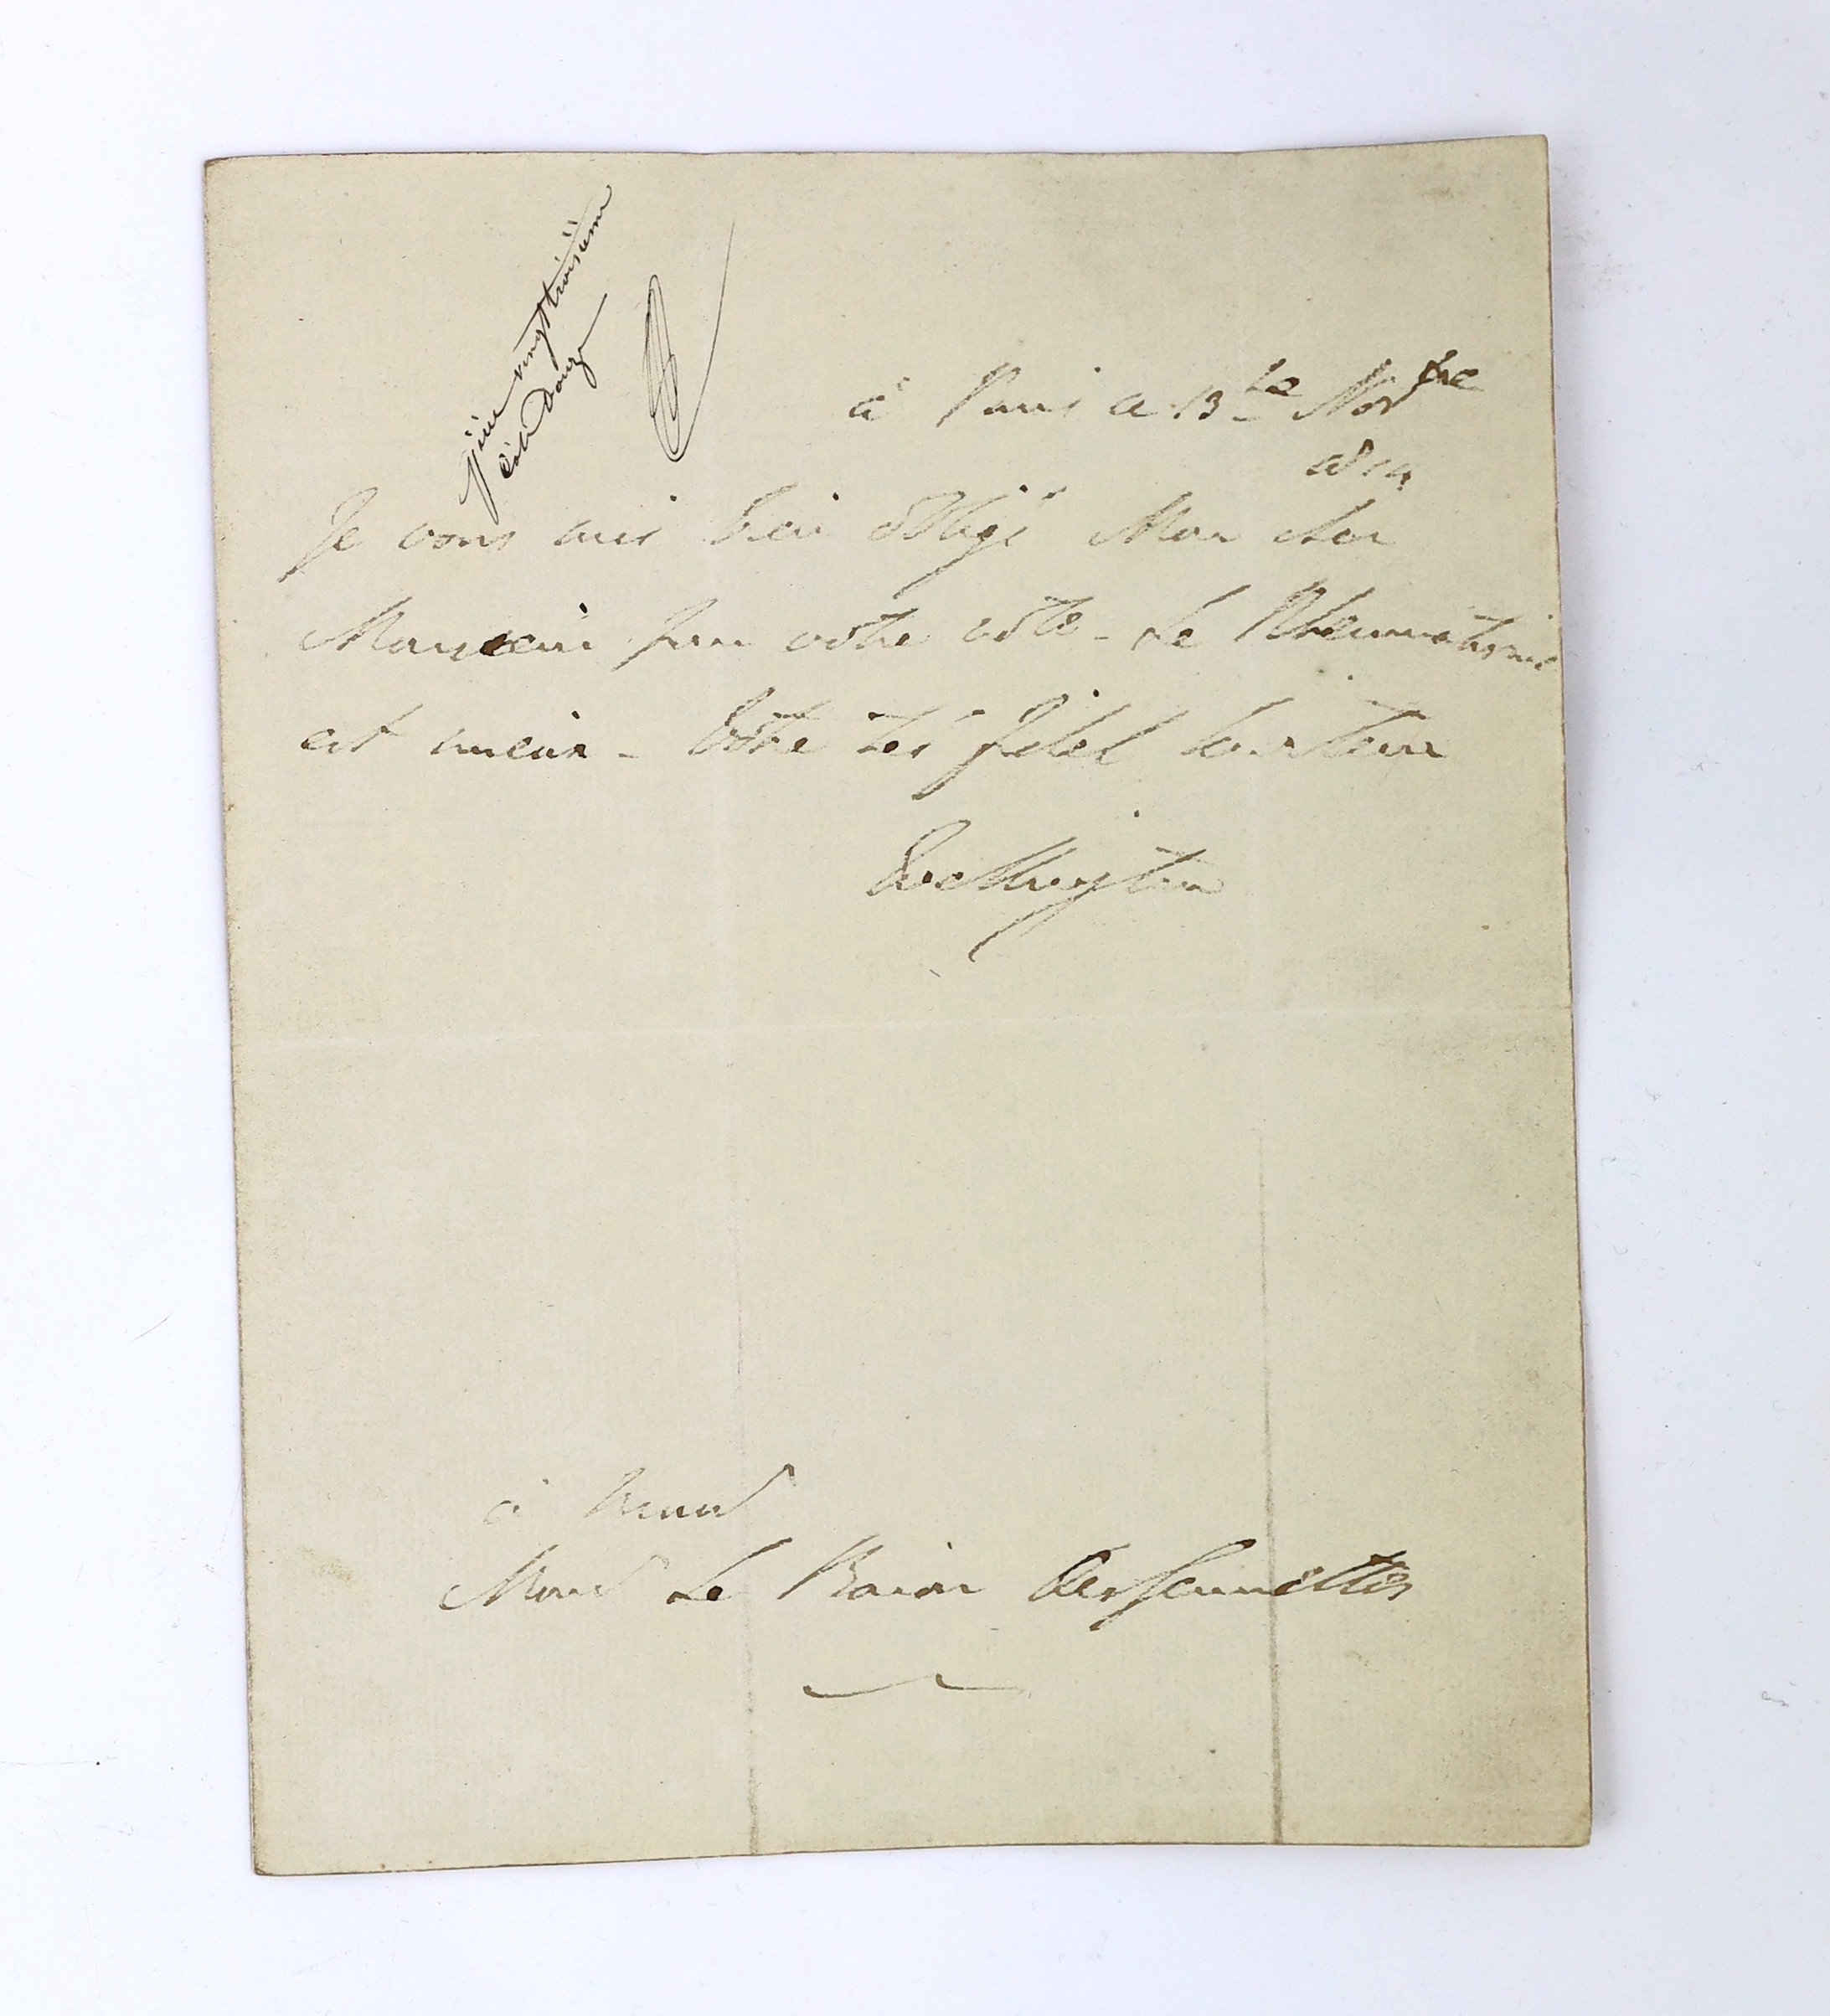 pièce vingt troisième
Côté Douze
à Paris ce 13 le Novbre
1814
Je vous suis bien obligé Mon cher
Monsieur pour votre note - Le Rheumatisme
est mieux - Votre très fidel Serviteur
Wellington
à Monsr
Monsr Le Baron Desgenettes